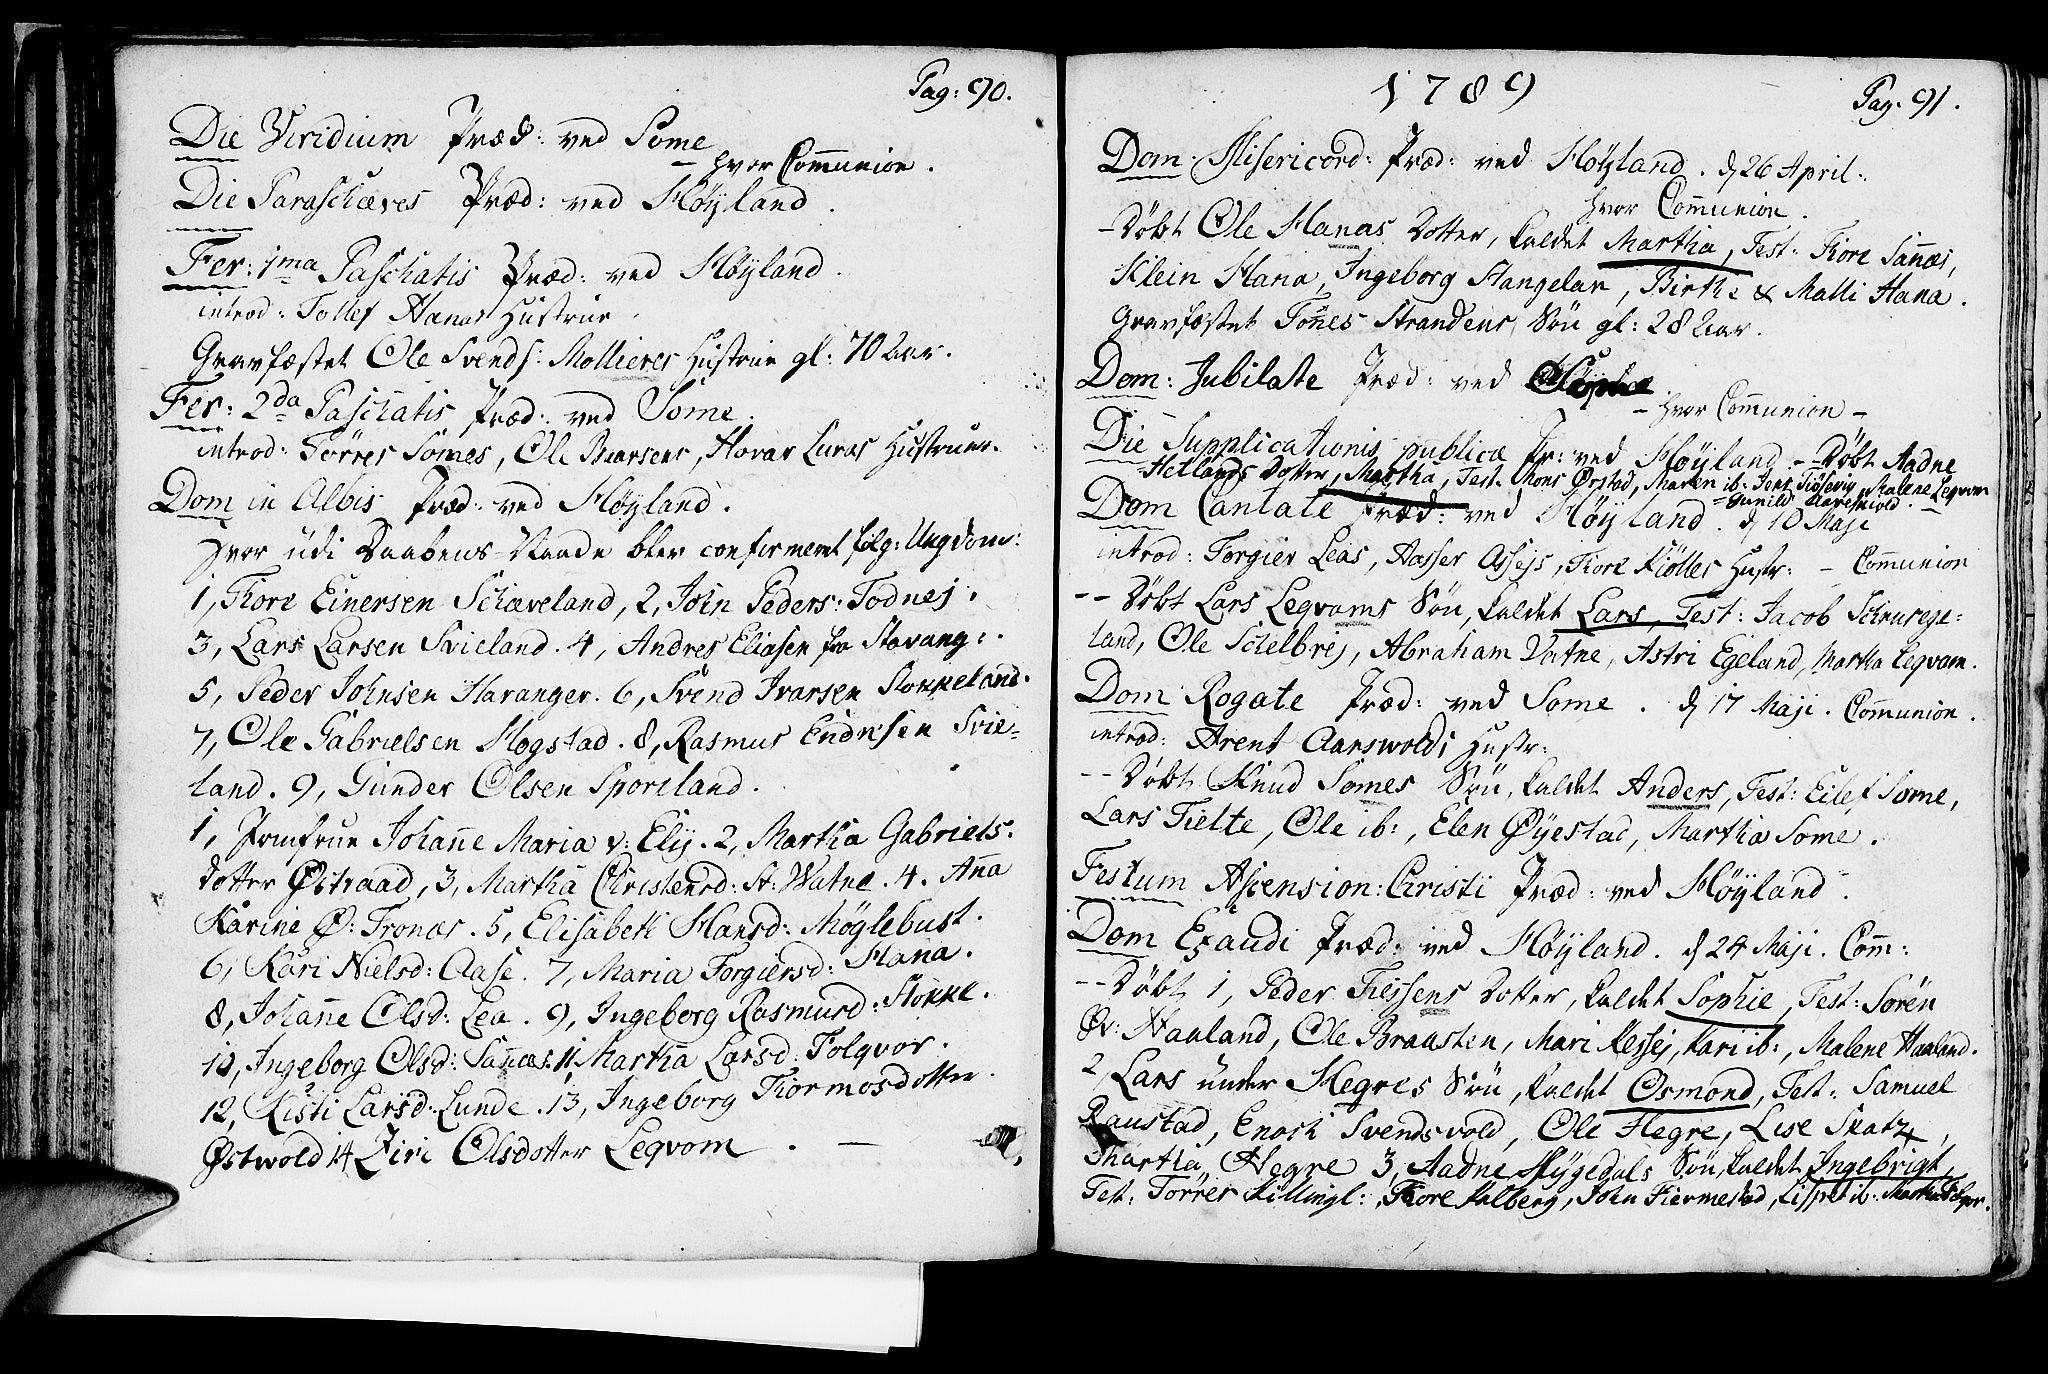 Pag: 90.
Die Viridium Præd: ved Some
hvor Com̄union.
Die Parasceves Præd: ved Høyland.
Fer: 1ma Paschatis Præd: ved Høyland.
introd: Tollef Hanas Hustrue.
Gravfæstet Ole Svends: Mollieres Hustrue gl: 70 Aar.
Fer: 2da Paschatis Præd: ved Some.
introd: Tørres Somes, Ole Baarsens, Hovar Luras Hustruer.
Dom in Albis Præd: ved Høyland.
hvor udi Daabens-Naade blev confirmeret følg: Ungdom:
1, Tiore Einersen Schæveland, 2, John Peders: Todnej.
3, Lars Larsen Svieland. 4, Andres Eliasen fra Stavang:.
5, Peder Johnsen Haranger. 6, Svend Ivarsen Stokkeland.
7, Ole Gabrielsen Hogstad. 8, Rasmus Endresen Svie-
land. 9, Gunder Olsen Sporeland.
1, Jomfrue Johan̄e Maria v: Elij. 2, Martha Gabriels-
dotter Østraad, 3, Martha Christensd: St: Watne. 4. An̄a
Karine Ø: Tronæs. 5, Elisabeth Hansd: Møglebust.
6, Kari Nielsd: Aase. 7, Maria Torgiersd: Hana.
8, Johan̄e Olsd: Lea. 9, Ingeborg Rasmusd: Stokke.
10, Ingeborg Olsd: San̄æs. 11, Martha Larsd: Folqvor.
12, Kisti Larsd: Lunde. 13, Ingeborg Tiormosdotter
Østwold 14 Ziri Olsdotter Leqvom.
1789
Pag. 91.
Dom. Misericord: Præd: ved Høyland. d 26 April.
hvor Com̄union.
- Døbt Ole Hanas Dotter, kaldet Martha, Test: Tiore San̄æs,
Klein Hana, Ingeborg Stangelan, Birthe & Malli Hana.
Gravfæstet Tøn̄es Strandens Søn gl: 28 Aar.
Dom: Jubilate Præd: ved
- hvor Com̄union -
Die Supplicationis publica Pr: ved Høyland - Døbt Aadne
Hetlands Dotter, Martha, Test. Mons Ørstad, Maren ib: Malene Leqvom
Gunild
Dom Cantate Præd: ved Høyland. d 10 Maji
introd: Torgier Leas, Aasser Assejs, Tiore Kiølles Hustr: - Com̄union
-- Døbt Lars Leqvams Søn, kaldet Lars, Test: Jacob Schurege-
land, Ole Schelbrej, Abraham Vatne, Astri Egeland, Martha Leqvam.
Dom Rogate Præd: ved Some. d 17 Maji. Com̄union.
introd: Arent Aarswolds Hustr:
-- Døbt Knud Somes Søn, kaldet Anders, Test: Eilef Some,
Lars Tielte, Ole ib:, Elen Øyestad, Martha Some.
Festum Ascension: Christi Præd: ved Høyland.
Dom Exaudi Præd: ved Høyland. d 24 Maji. Com̄:
-- Døbt 1, Peder Tiessens Dotter, kaldet Sophie, Test: Søren
Øv: Haaland, Ole Braasten, Mari Kessej, Kari ib:, Malene Haaland.
2, Lars under Hegres Søn, kaldet Osmond, Test: Samuel
Raustad, Enoch Svendsvold, Ole Hegre, Lise Skatz,
Martha Hegre 3, Aadne Høgedals Søn, kaldet Ingebrigt,
Test: Tørres Killingl:, Tiore Kalberg, John Fiermestad, Lispet ib: